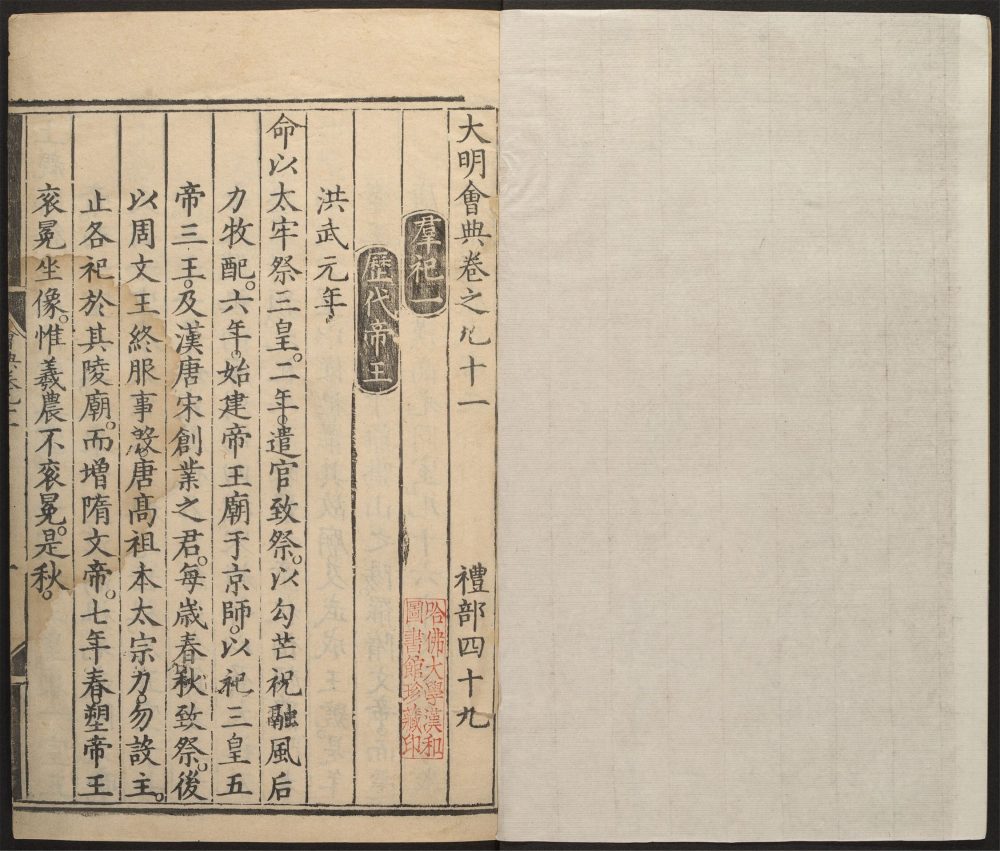 大明會典卷之九十一 禮部四十九
羣祀一
哈佛大學漢和
圖書館珍藏印
歷代帝王
洪武元年
命以太牢祭三皇。二年。遣官致祭。以勾芒祝融風后
力牧配。六年。始建帝王廟于京師。以祀三皇五
帝三王。及漢唐宋創業之君。每歲春秋致祭。後
以周文王終服事殷。唐高祖本太宗力。勿設主。
止各祀於其陵廟。而增隋文帝。七年春。塑帝王
衮冕坐像。惟羲農不衮冕。是秋。